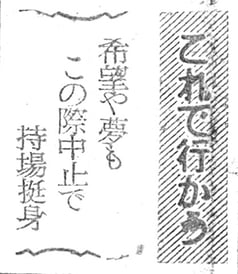 これで行かう
希望や夢も
この際中止で
持場挺身